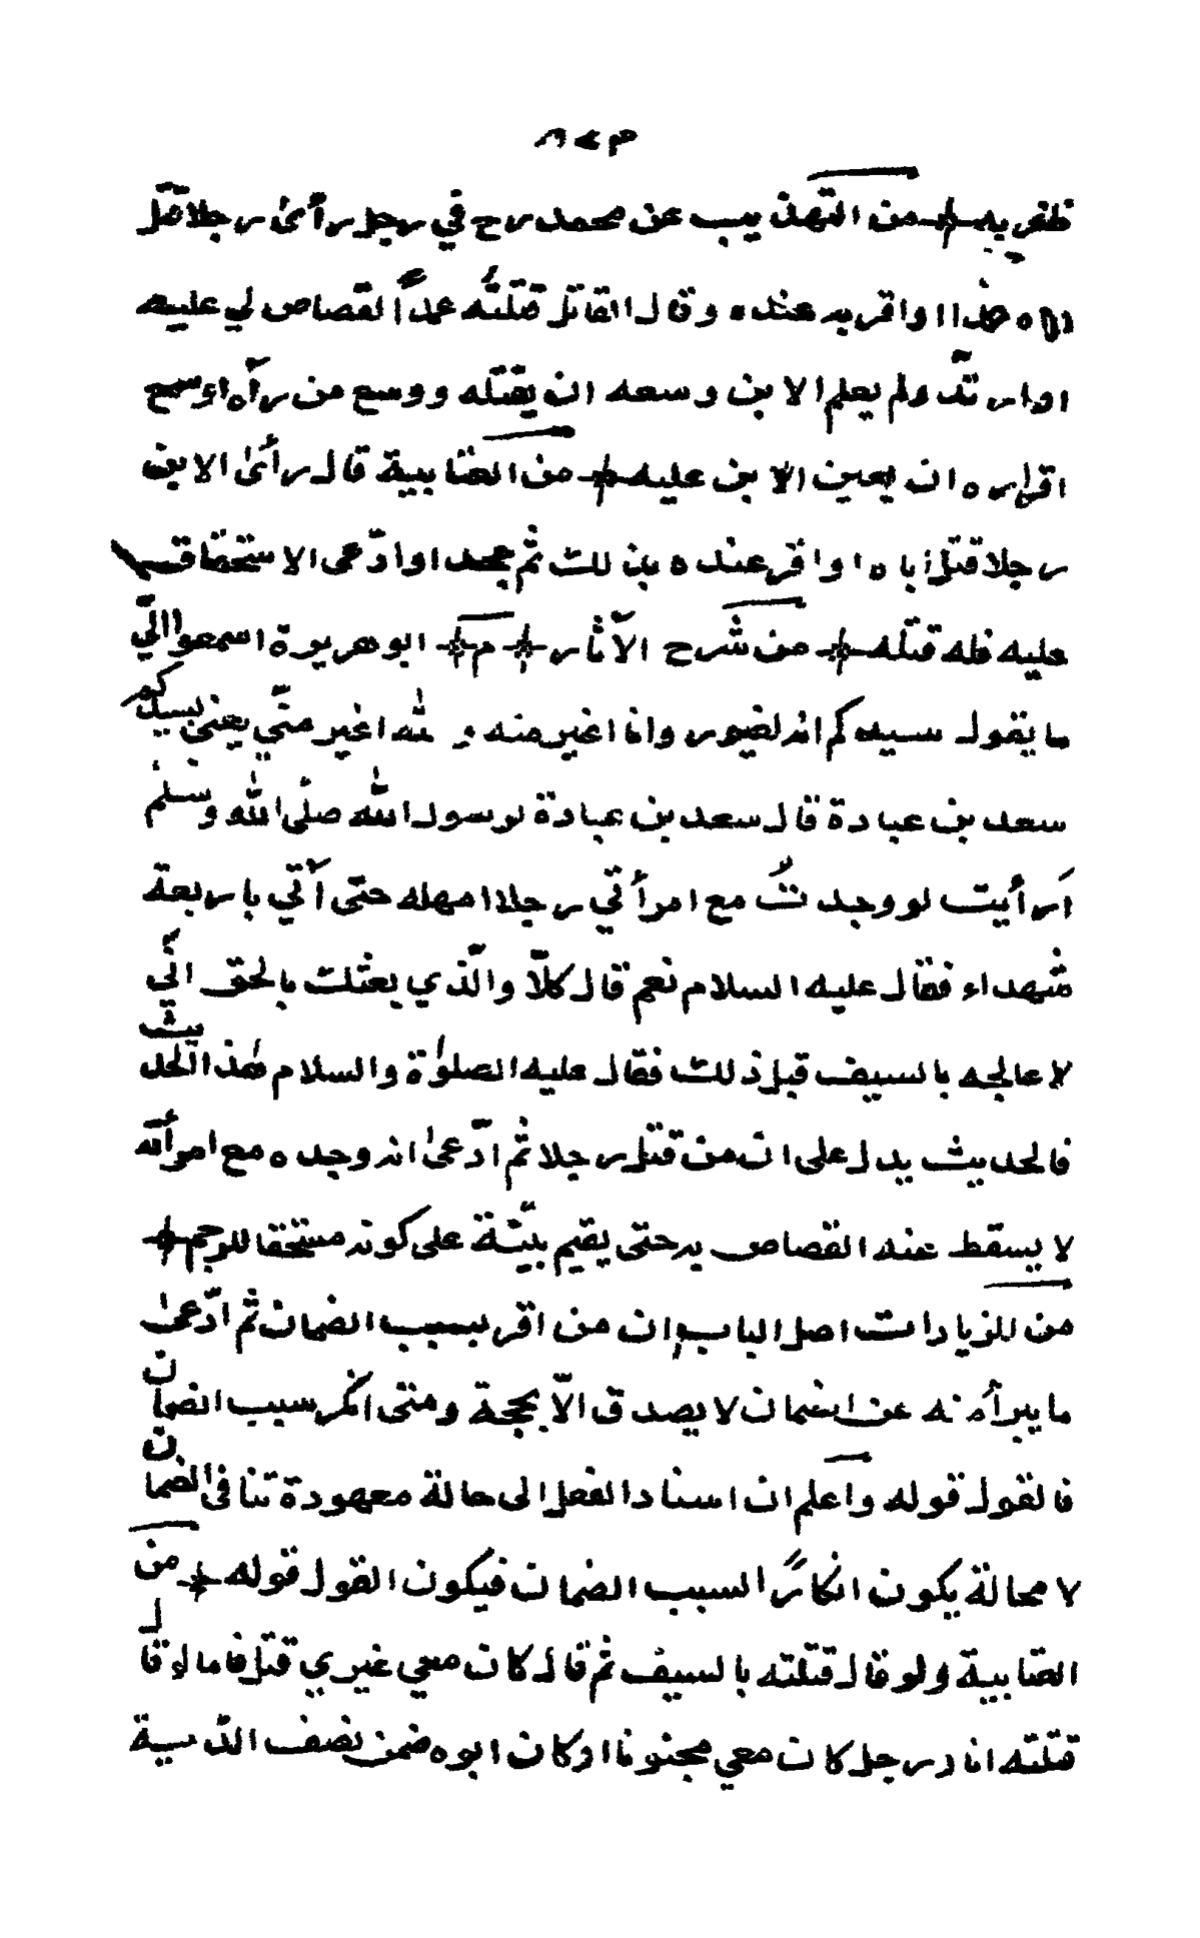 ظفر به * من التهذيب عن محمد رح في رجل رأىٰ رجلا قتل
اباه عمدا او اقر به عنده وقال القاتل قتلته عمداً القصاص لي عليه
او ارتدّ ولم يعلم الابن وسعه ان يقتله ووسع من رآه او سمع
اقراره ان يعين الابن عليه * من العتابية قال رأىٰ الابن
رجلا قتل اباه او اقر عنده بذلك ثم جحد او ادّعى الاستحقاق
عليه فله قتله * من شرح الآثار * م * ابو هريرة اسمعوا الىٰ
ما يقول سيدكم انه لغيور وانا اغير منه و لله اغير منّي يعني بسيدكم
سعد بن عبادة قال سعد بن عبادة لرسول الله صلّى الله وسلّم
أرأيت لو وجدتُ مع امرأتي رجلا امهله حتى آتي باربعة
شهداء فقال عليه السلام نعم قال كلّا والّذي بعثك بالحق انّي
لاعالجه بالسيف قبل ذلك فقال عليه الصلوٰة والسلام هٰذا الحديث
فالحديث يدل على ان من قتل رجلا ثم ادّعىٰ انه وجده مع امرأته
لا يسقط عنه القصاص به حتى يقيم بيّنة على كونه مستحقا للرجم *
من الزيادات اصل الباب ان من اقر بسبب الضمان ثم ادّعىٰ
ما يبرأه منه عن الضمان لا يصدق الّا بحجة ومتى انكر سبب الضمان
فالقول قوله واعلم ان اسناد الفعل الى حالة معهودة تنافى الضمان
لا محالة يكون انكارًا لسبب الضمان فيكون القول قوله * من
العتابية ولو قال قتلته بالسيف ثم قال كان معي غيري قتل فاما لو قال
قتلته انا ورجل كان معي مجنونا او كان ابوه ضمن نصف الدّية